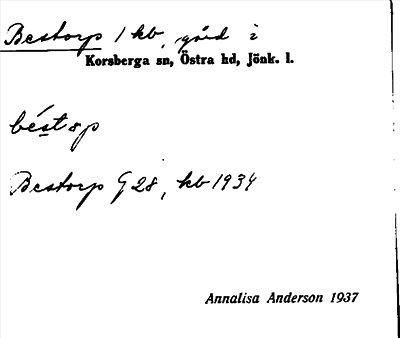 Bestorp 1 kb, gård i
Korsberga sn, Östra hd, Jönk. l.
béstap
Bestorp G 28, kb 1934
Annalisa Anderson 1937